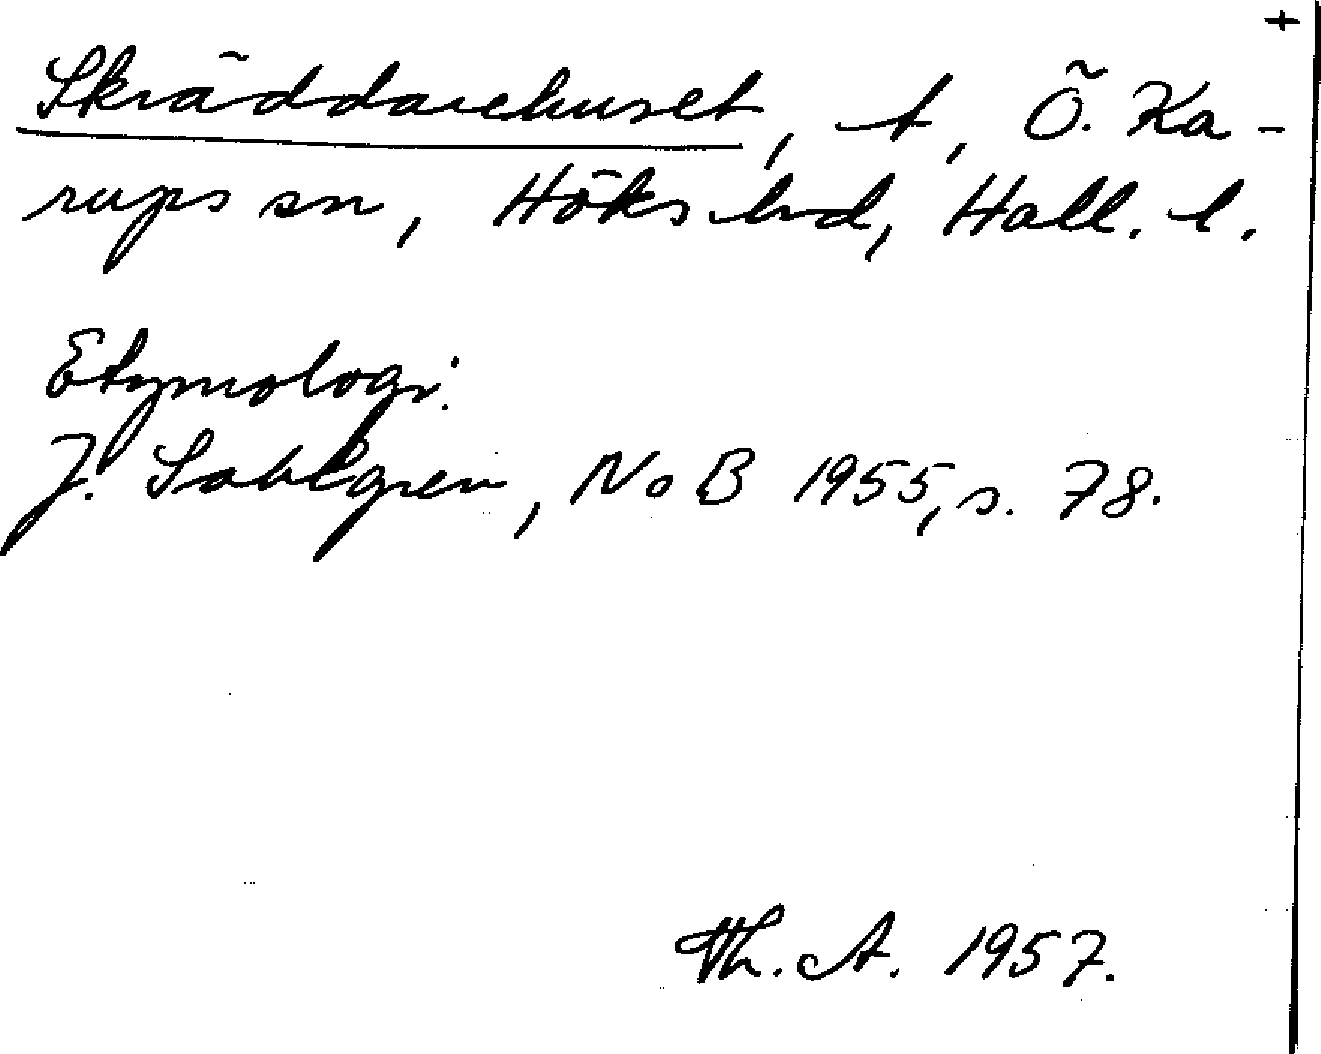 +
Skräddarehuset, t, Ö. Ka-
rups sn, Höks hd, Hall. l.
Etymologi:
J. Sahlgren, NoB 1955, s. 78.
Th. A. 1957.